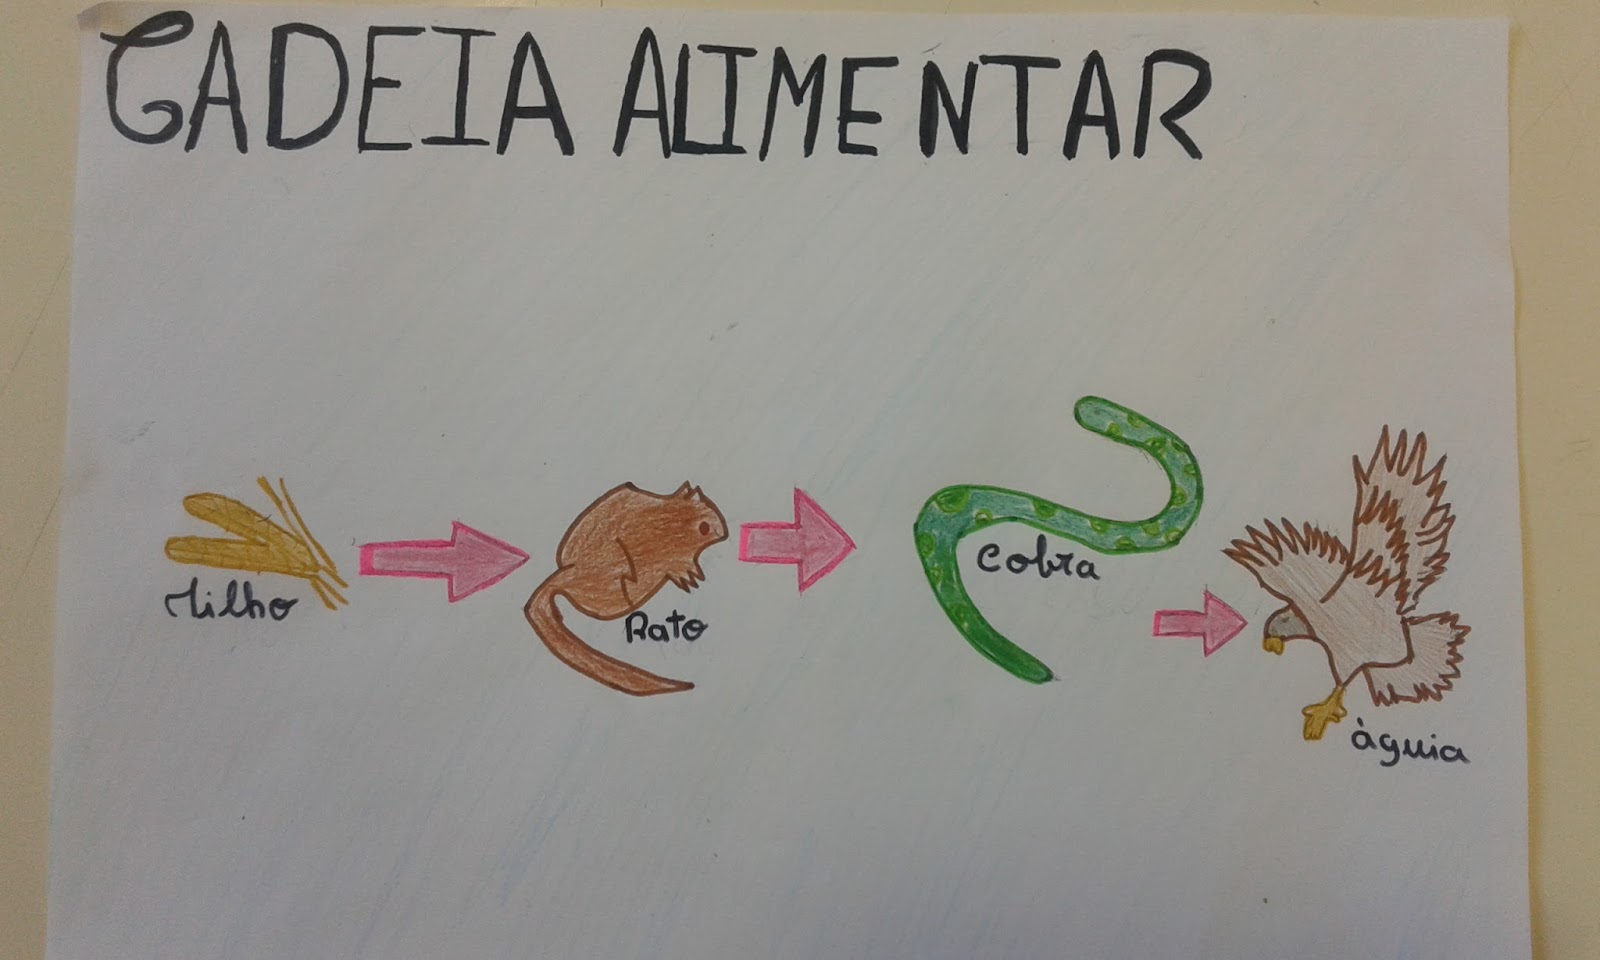 CADEIA ALIMENTAR
Milho
Rato
Cobra
àguia